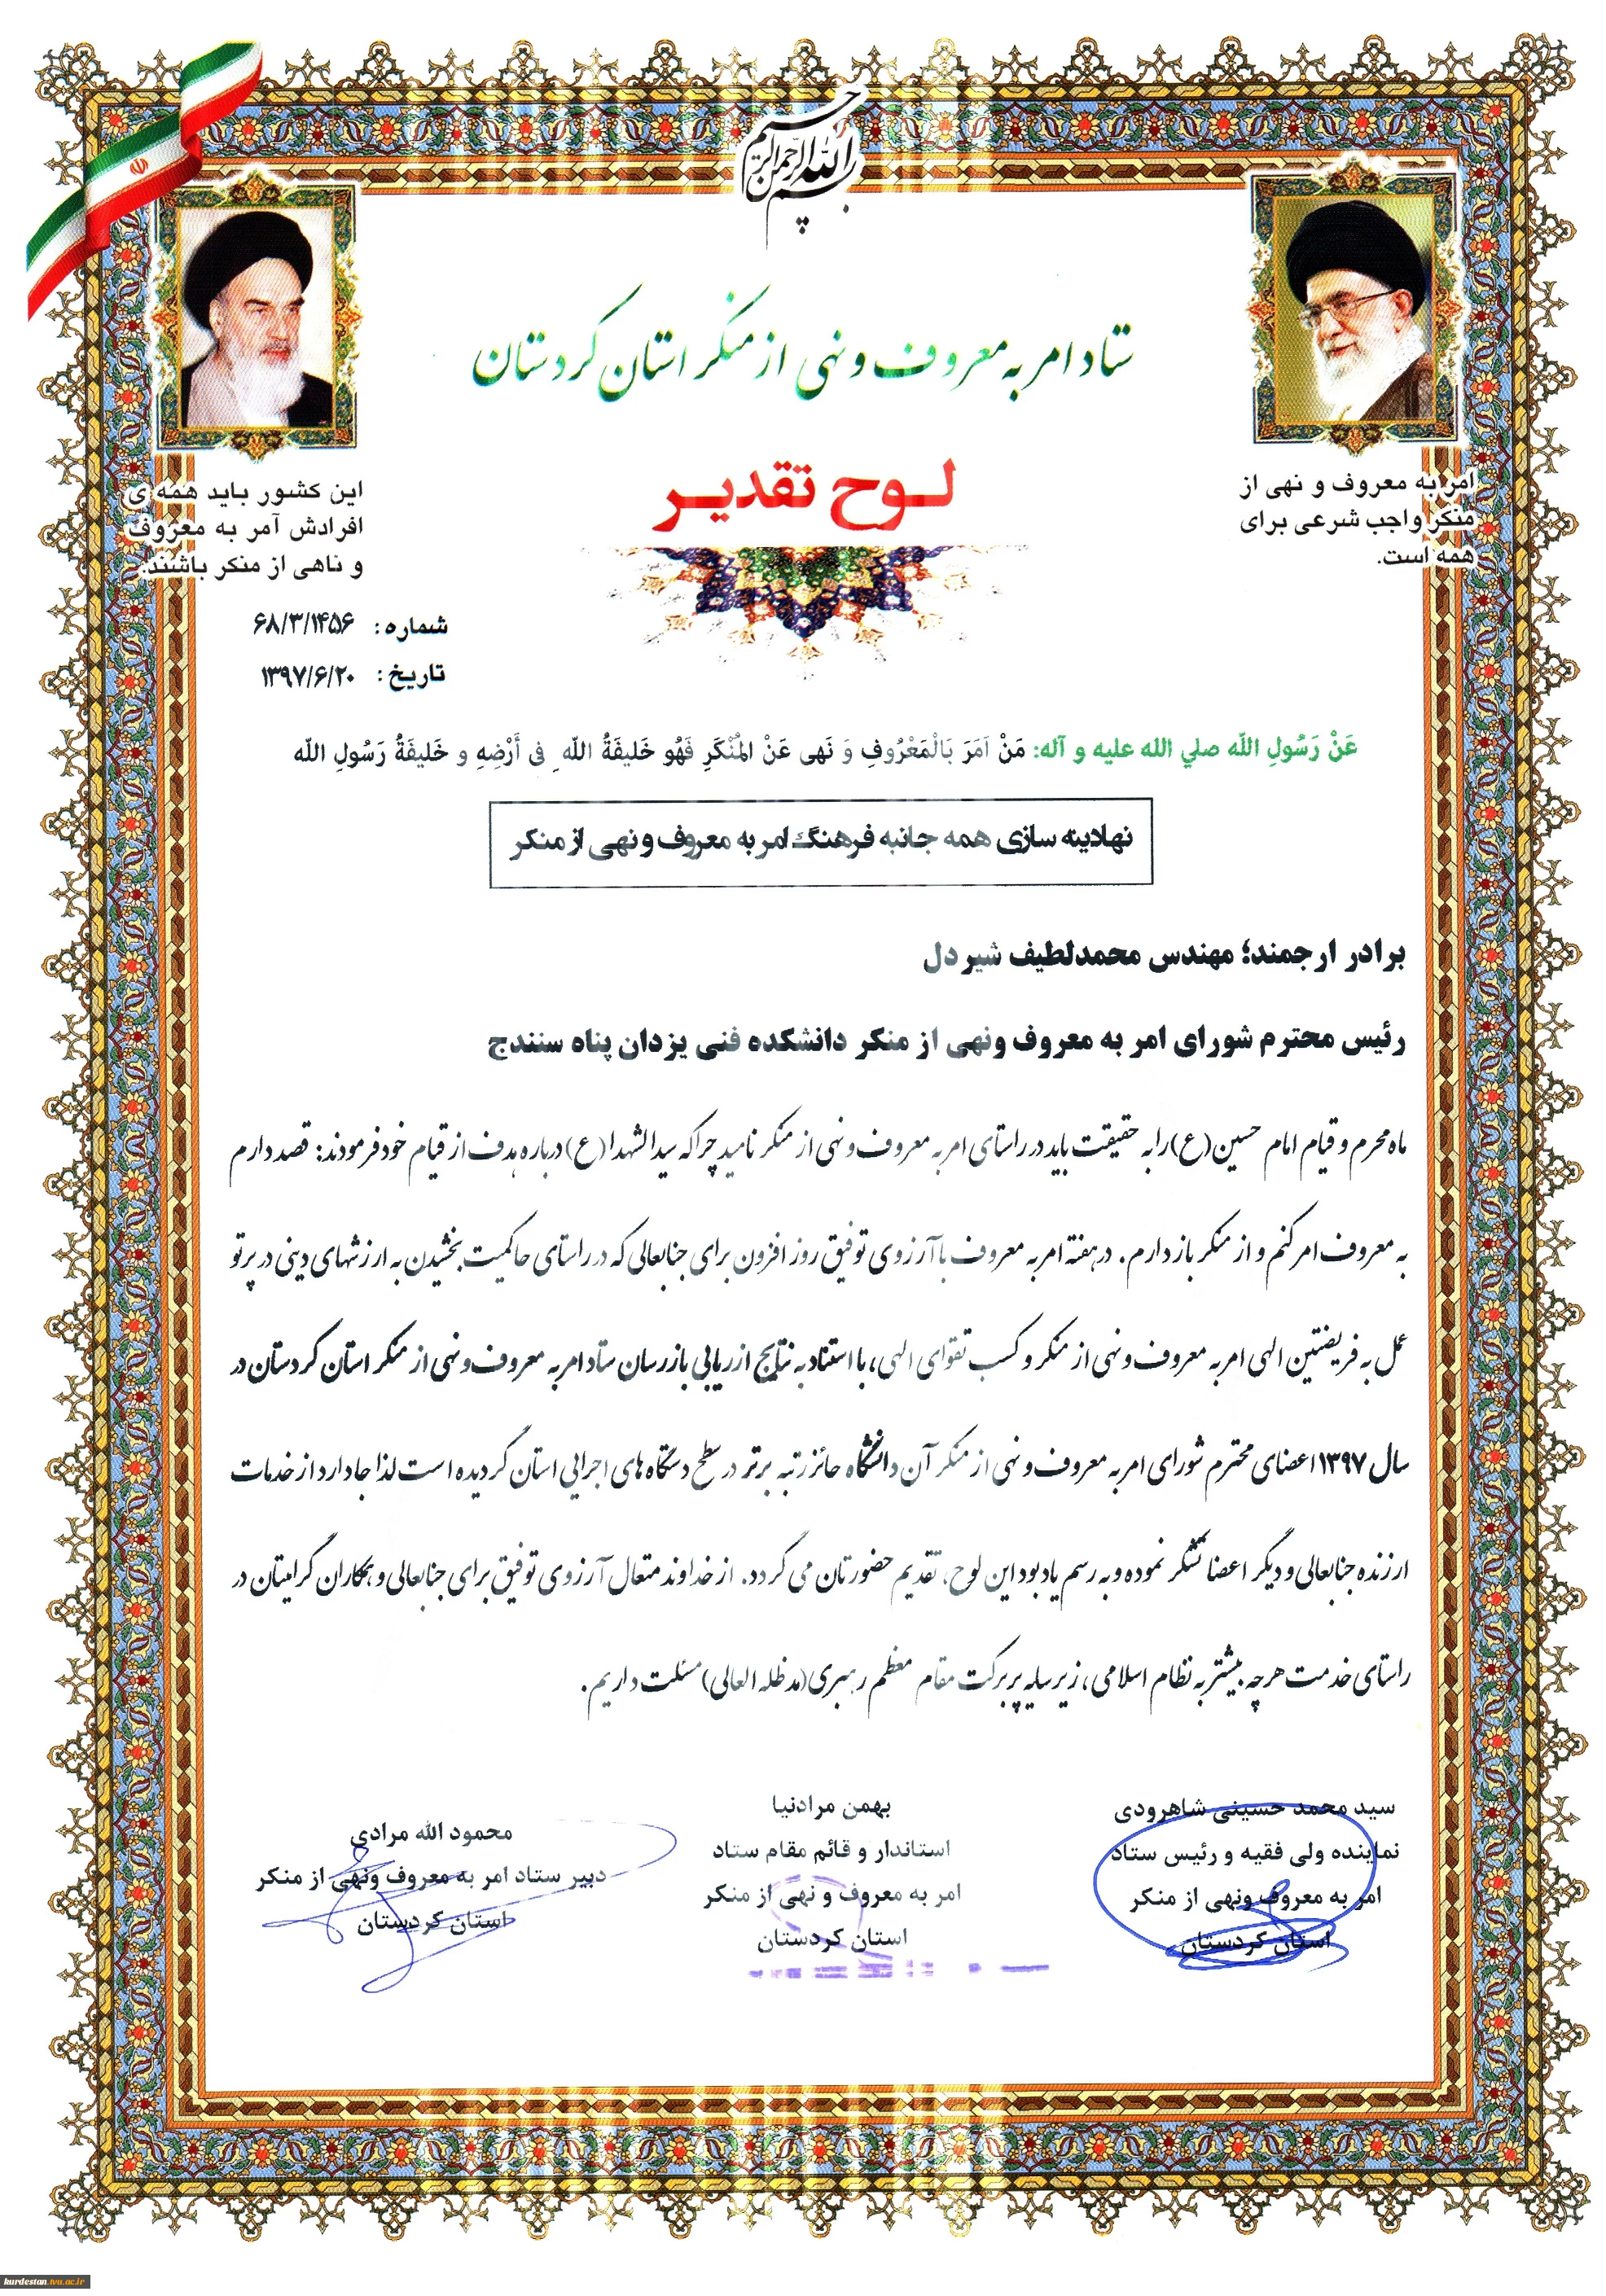 بسم الله الرحمن الرحیم
ستاد امر به معروف و نهی از منکر استان کردستان
لوح تقدیر
امر به معروف و نهی از
منکر واجب شرعی برای
همه است.
این کشور باید همه ی
افرادش آمر به معروف
و ناهی از منکر باشند.
شماره: ۶۸/۳/۱۴۵۶
تاریخ: ۱۳۹۷/۶/۲۰
عَنْ رَسُولِ اللّه صلي الله علیه و آله: مَنْ اَمَرَ بَالْمَعْرُوفِ وَ نَهی عَنْ المُنْکَرِ فَهُو خَلیفَةُ اللّهِ فی أَرْضِهِ و خَلیفَةُ رَسُولِ اللّه
نهادینه سازی همه جانبه فرهنگ امر به معروف و نهی از منکر
برادر ارجمند؛ مهندس محمدلطیف شیردل
رئیس محترم شورای امر به معروف ونهی از منکر دانشکده فنی یزدان پناه سنندج
ماه محرم و قیام امام حسین(ع) را به حقیقت باید در راستای امر به معروف و نهی از منکر نامید چرا که سیدالشهدا(ع) درباره هدف از قیام خود فرمودند: قصد دارم
به معروف امر کنم و از منکر باز دارم. در هفته امر به معروف با آرزوی توفیق روز افزون برای جنابعالی که در راستای حاکمیت بخشیدن به ارزشهای دینی در پرتو
عمل به فریضتین الهی امر به معروف و نهی از منکر و کسب تقوای الهی، با استناد به نتایج ارزیابی بازرسان ستاد امر به معروف و نهی از منکر استان کردستان در
سال ۱۳۹۷ اعضای محترم شورای امر به معروف و نهی از منکر آن دانشگاه حائز رتبه برتر در سطح دستگاه های اجرایی استان گردیده است لذا جا دارد از خدمات
ارزنده جنابعالی و دیگر اعضا تشکر نموده و به رسم یادبود این لوح، تقدیم حضورتان می گردد. از خداوند متعال آرزوی توفیق برای جنابعالی و همکاران گرامیتان در
راستای خدمت هرچه بیشتر به نظام اسلامی، زیر سایه پر برکت مقام معظم رهبری(مدظله العالی) مسئلت داریم.
سید محمد حسینی شاهرودی
نماینده ولی فقیه و رئیس ستاد
امر به معروف ونهی از منکر
استان کردستان
بهمن مرادنیا
استاندار و قائم مقام ستاد
امر به معروف و نهی از منکر
استان کردستان
محمود الله مرادی
دبیر ستاد امر به معروف ونهی از منکر
استان کردستان
kurdestan.tvu.ac.ir